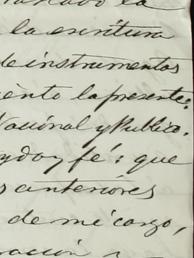 la escritura
de instrumentos
ento la presente:
Nacional y Publico
y doy fé: que
s anteriores
de mi cargo,